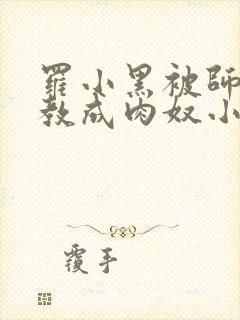 羅小黑被師
教成肉奴小
覆手